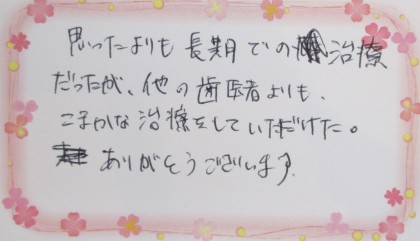 思ったよりも長期での治療
だったが、他の歯医者よりも、
こまかな治療をしていただけた。
ありがとうございます。